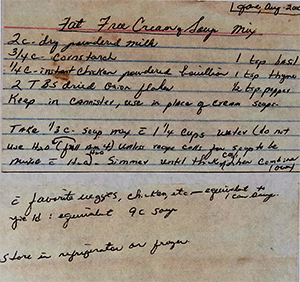 Aug. 200
Fat Free Creamy Soup Mix
2 c - dry powdered milk
3/4 c - cornstarch 1 tsp basil
1/4 c - instant chicken powdered bouillon 1 tsp thyme
2 TBS dried onion flakes 1/2 tsp. pepper
Keep in cannister, use in place of cream soups.
Take 1/3 c - soup mix c̄ 1 1/4 cups water (do not
use H2O (full amt) unless recipe calls for soup to be
mixed c̄ H2O Simmer until thick, then combine
c̄ favorite veggies, chicken, etc - equivalent to
1 can soup
yield: equivalent 9 c soup
Store in refrigerator or freezer